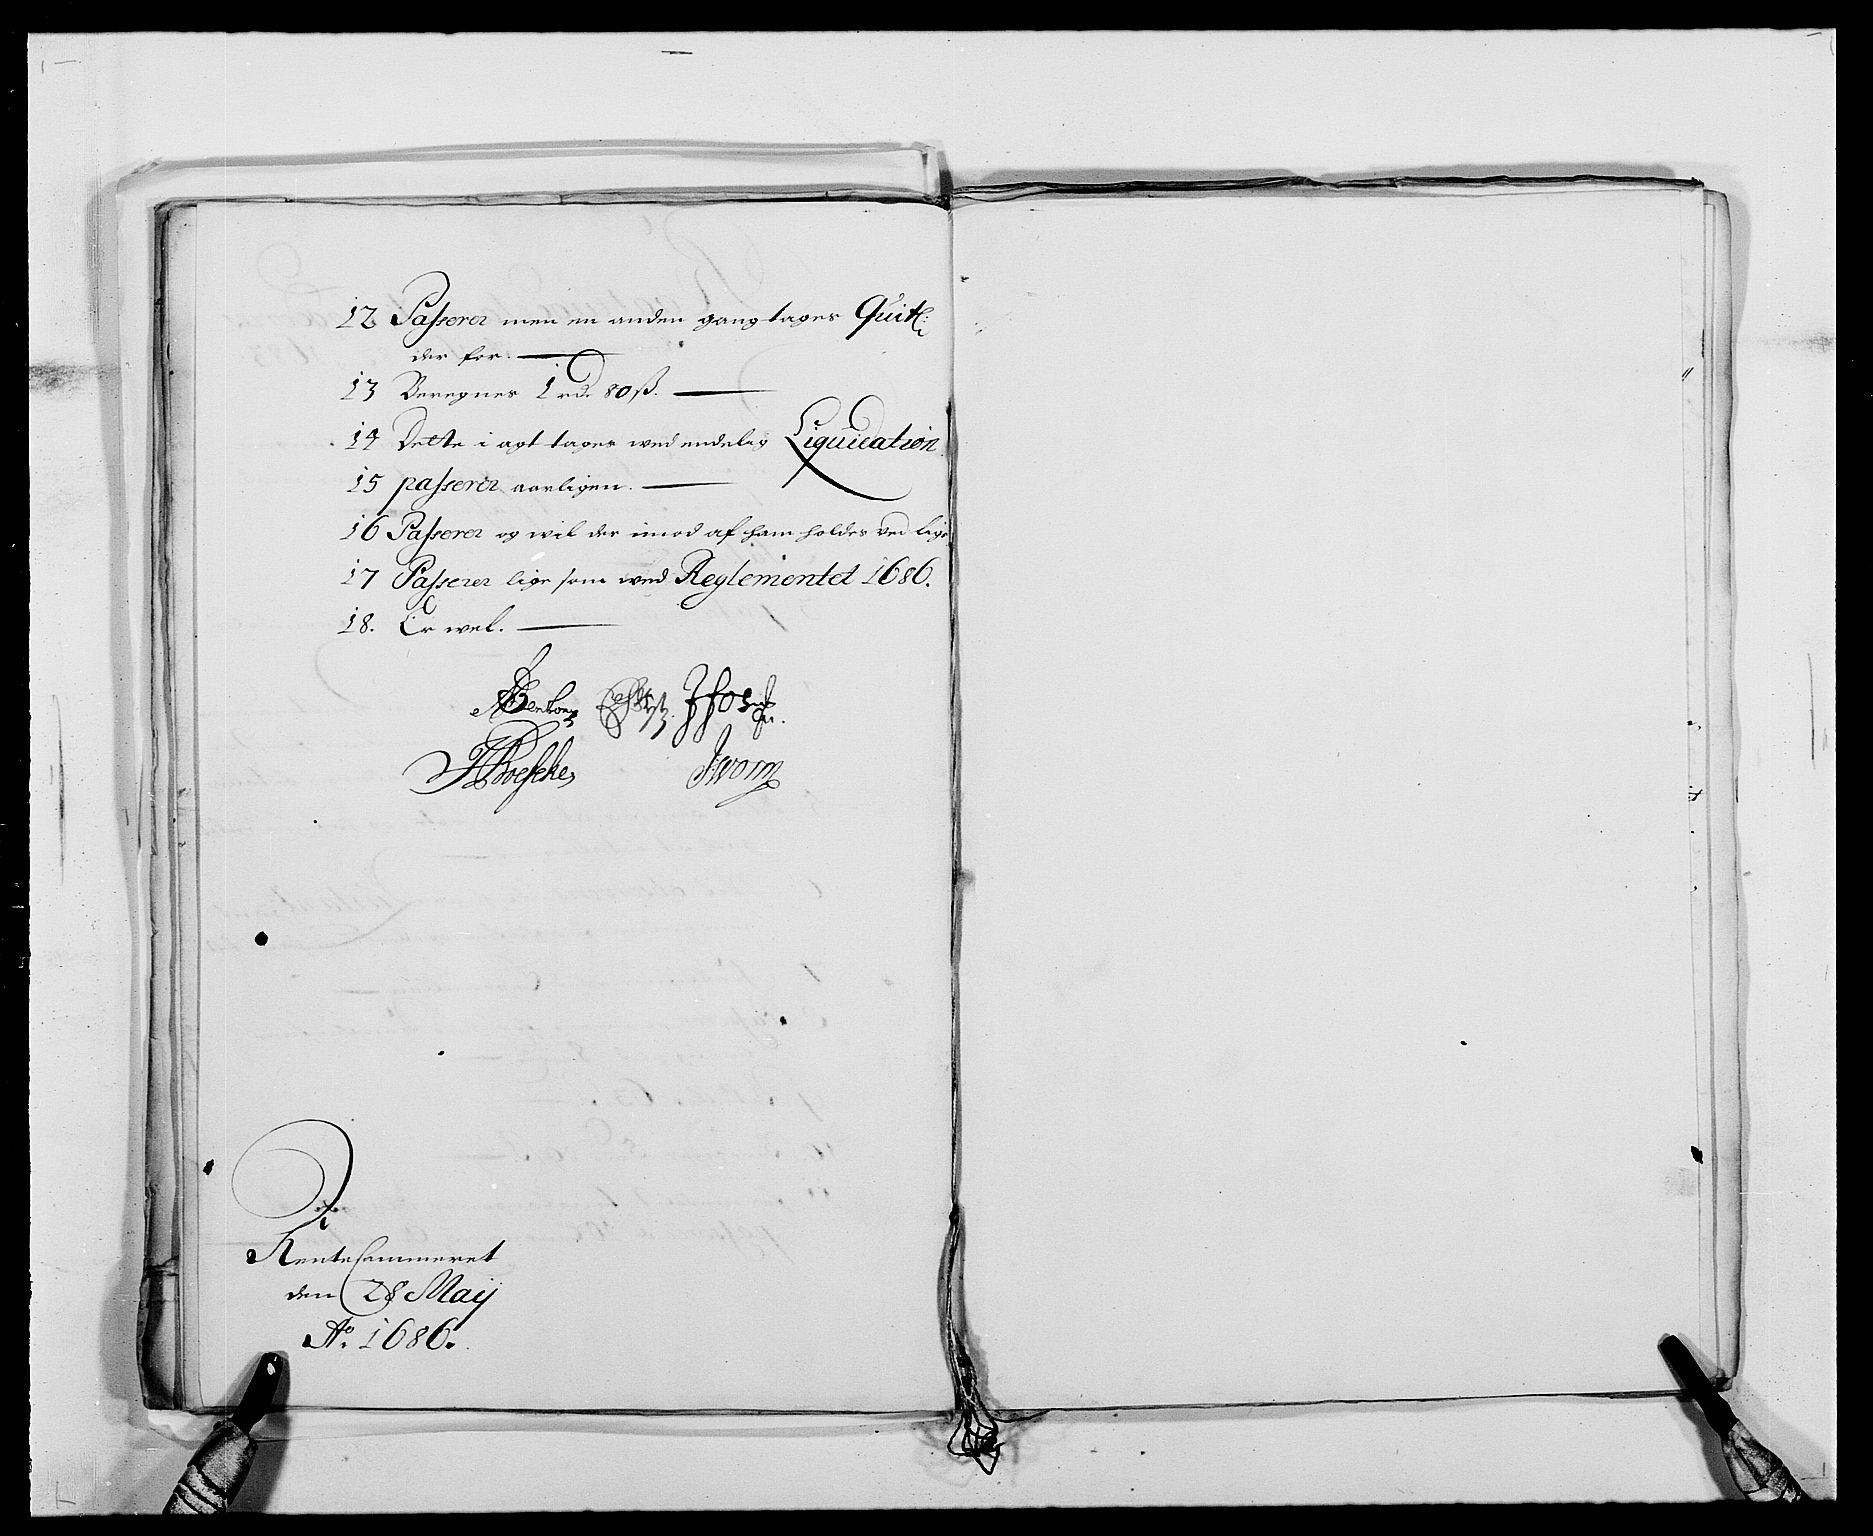 12 Passerer men en anden gang tages Quit:
der for.
13 Beregnes 1 rd 80 ß.
14 Dette i agt tages wed endelig Liquidation.
15 passerer aarligen.
16 Passerer og wil der imod af ham holdes ved lige
17 Passerer lige som wed Reglementet 1686.
18. Er wel.
JWorm
RenteCammeret
den 28 Maij
Ao. 1686.